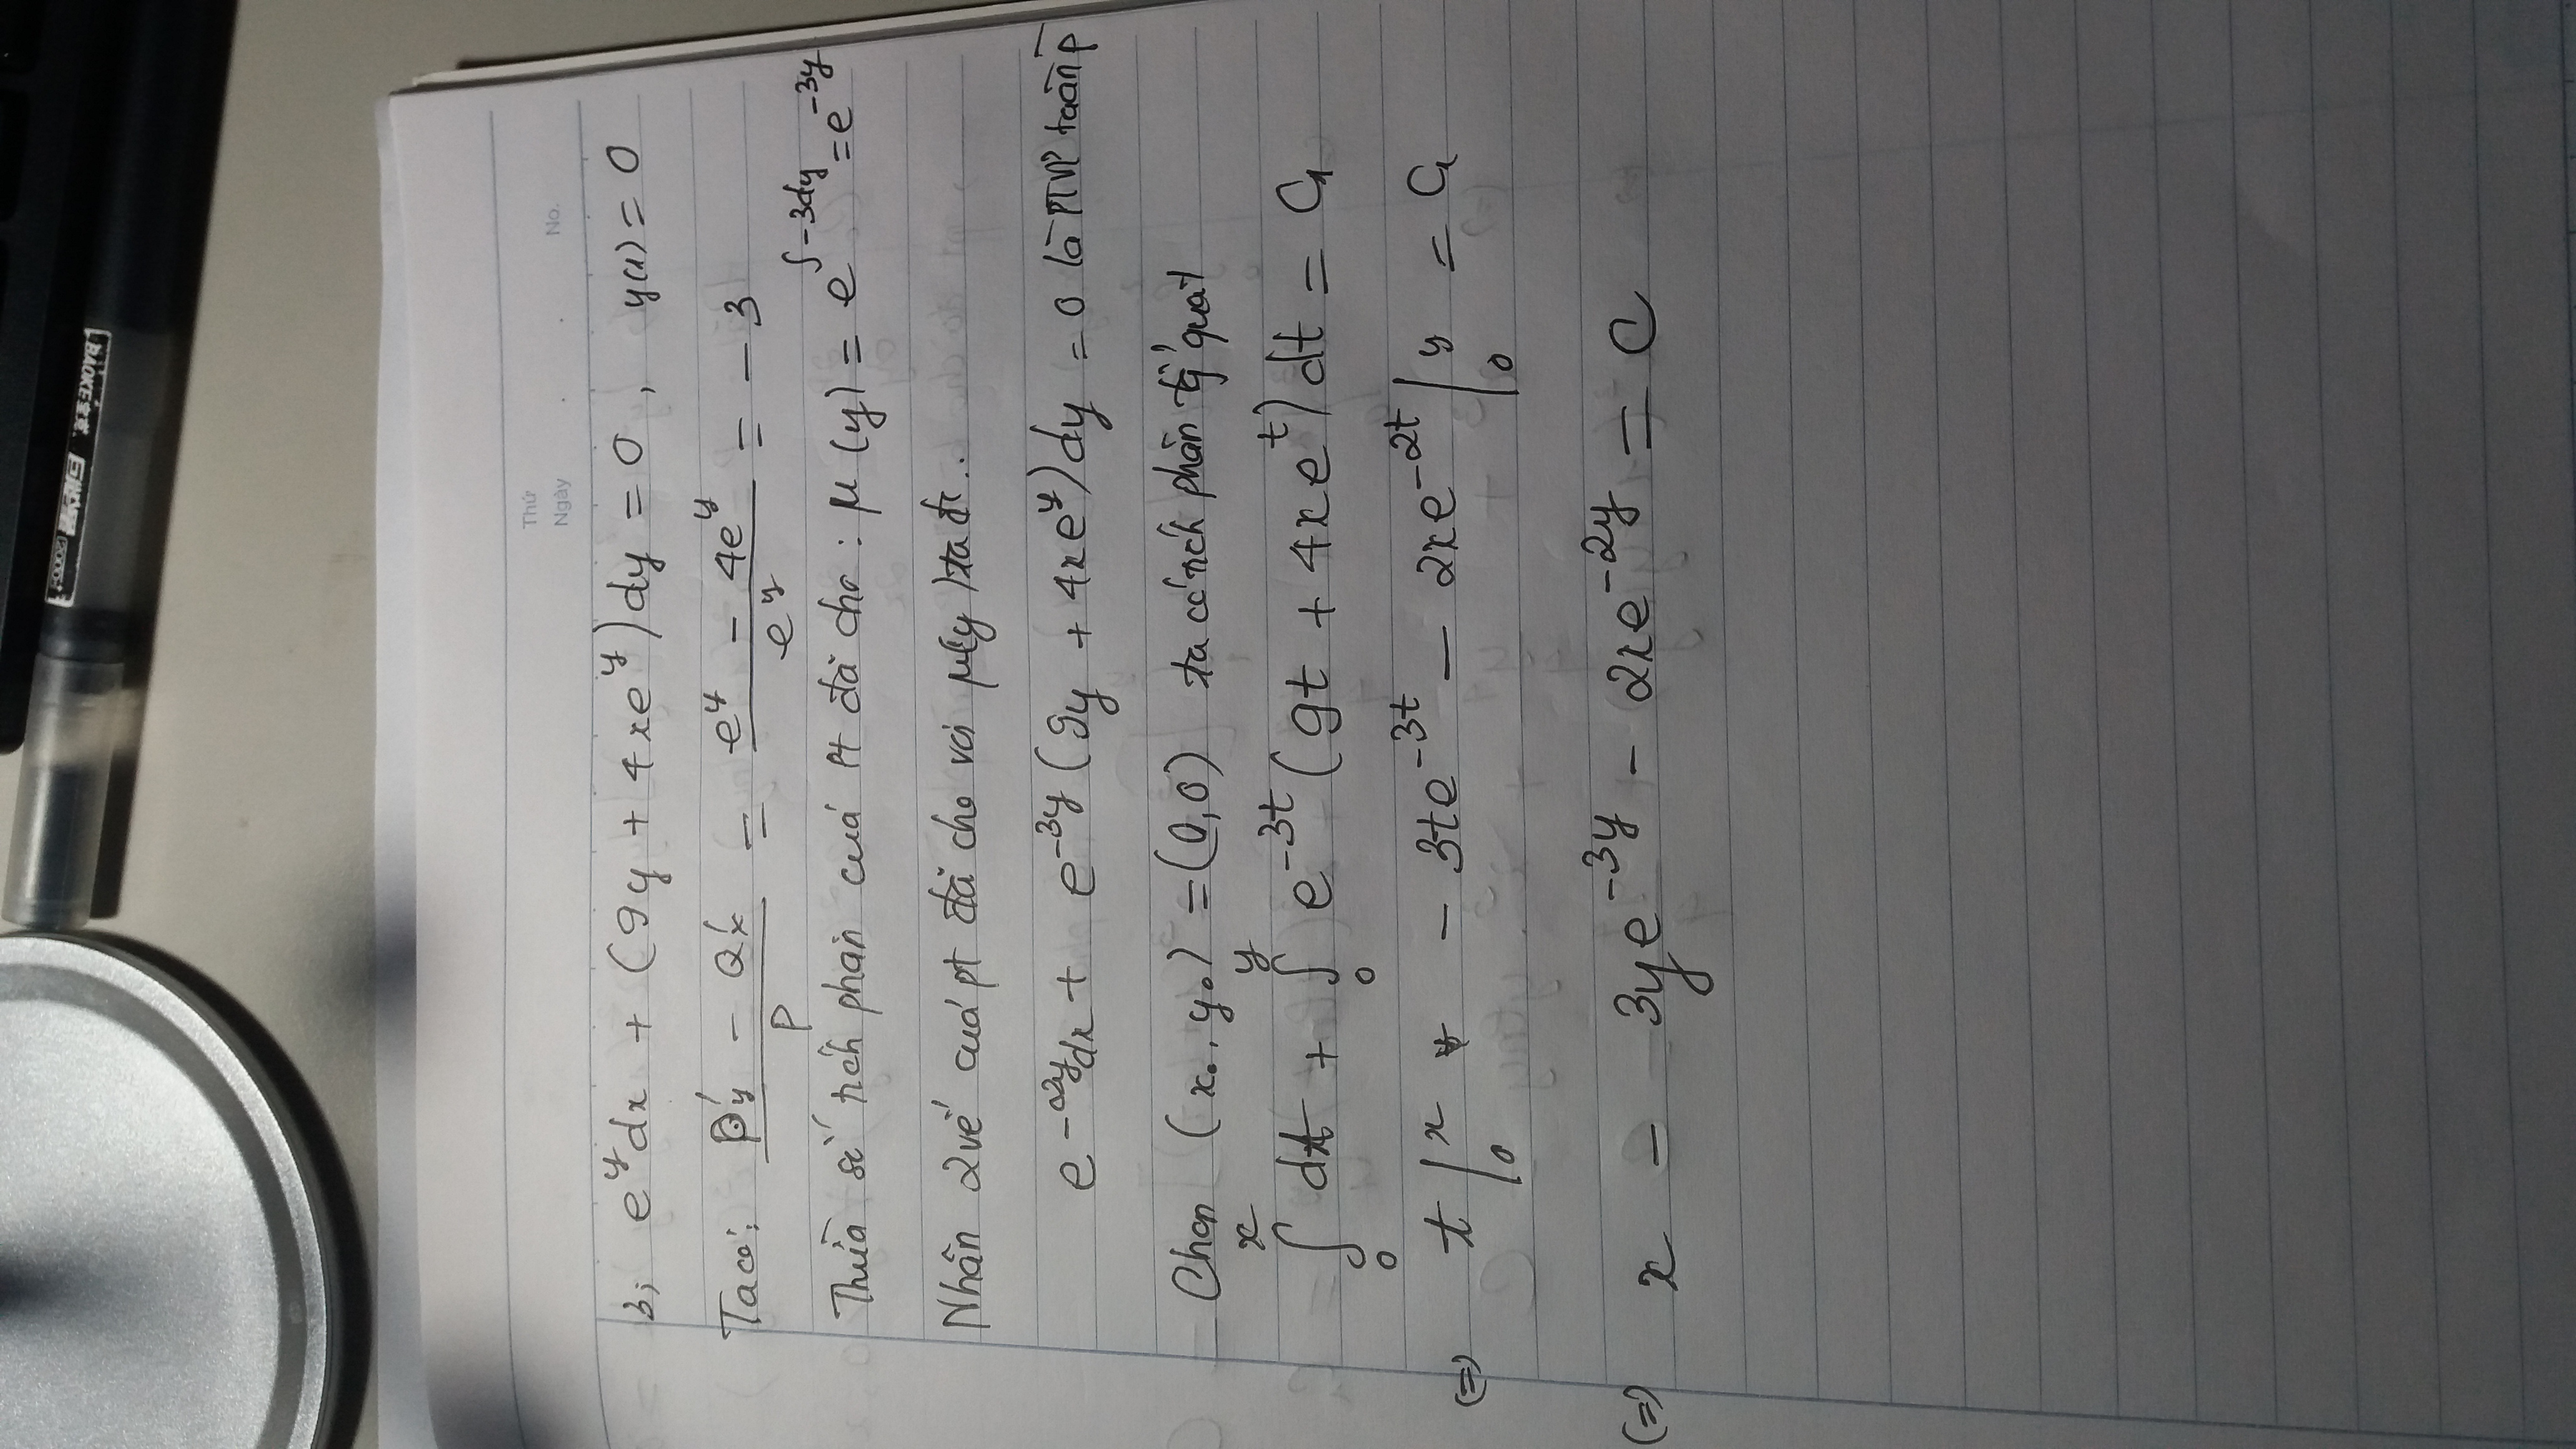 BAOKE宝克
Thứ
Ngày
No.
3; e^y dx + (9y + 4xe^y)dy = 0, y(1) = 0
Ta có: (P'y - Q'x)/P = (e^y - 4e^y)/e^y = -3
Thừa số tích phân cuả pt đã cho: μ(y) = e^∫-3dy = e^-3y
Nhân 2 vế cuả pt đã cho với μ(y) ta đc..
e^-2y dx + e^-3y (9y + 4xe^y)dy = 0 là PTVP toàn p
Chọn (x₀, y₀) = (0,0) ta có tích phân tg quát
∫₀^x dt + ∫₀^y e^-3t (9t + 4xe^t)dt = C₁
(=) t |₀^x + - 3te^-3t - 2xe^-2t |₀^y = C₁
(=) x - 3ye^-3y - 2xe^-2y = C